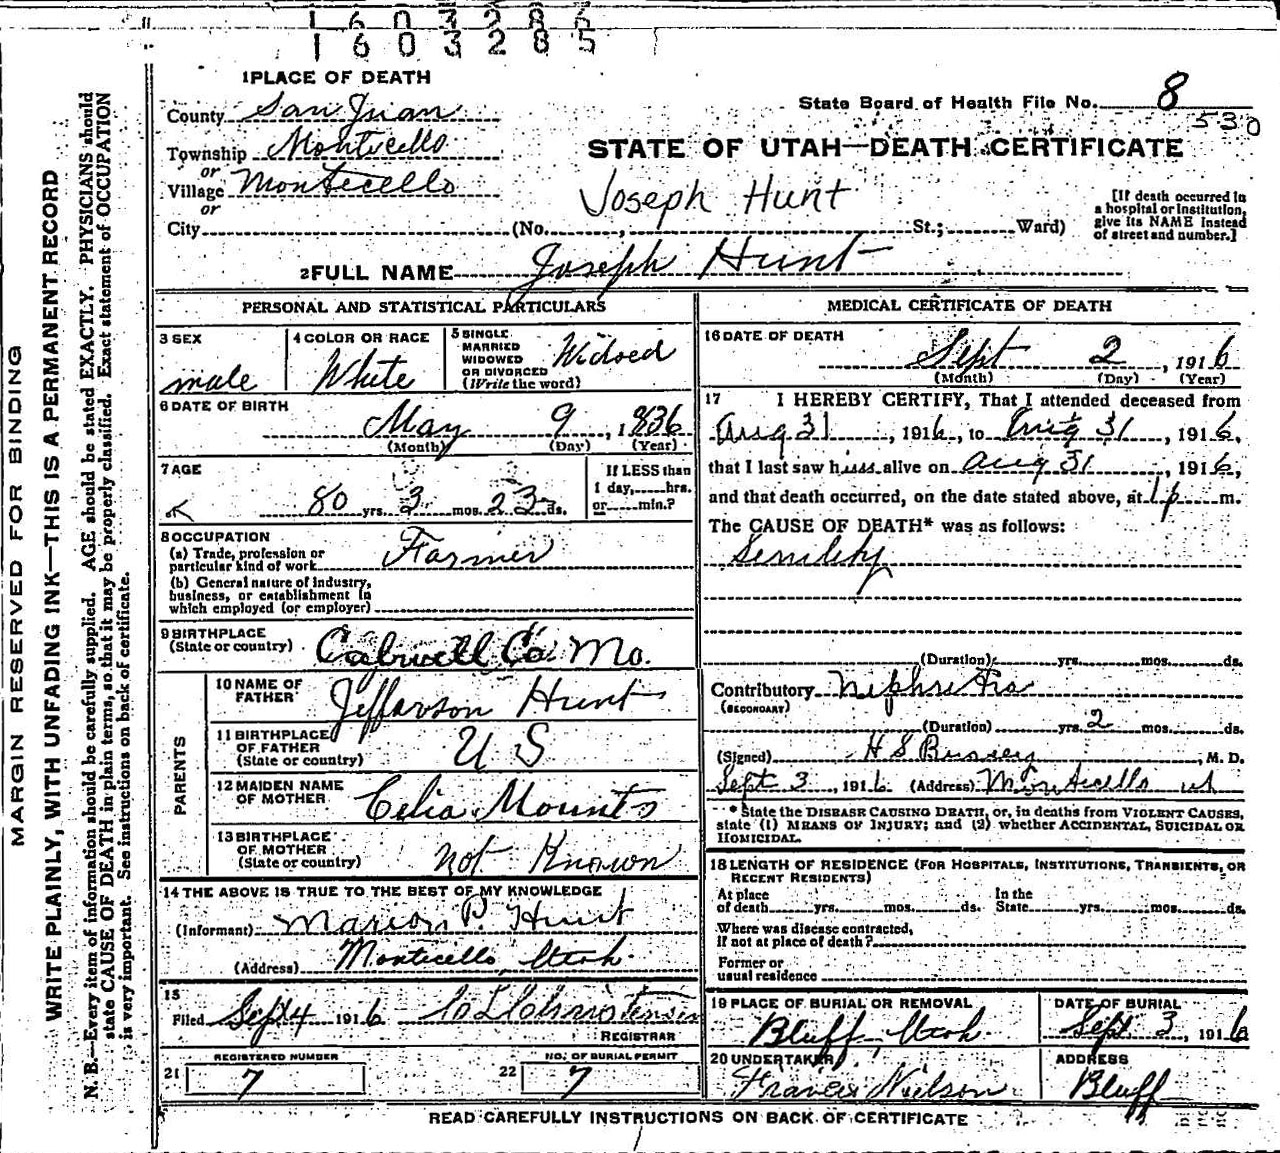 1603286
1603285
1 PLACE OF DEATH
State Board of Health File No. 8
530
County San Juan
Township Monticello
or
Village Monticello
or
City
STATE OF UTAH—DEATH CERTIFICATE
Joseph Hunt
(No. , St.; Ward)
[If death occurred in
a hospital or institution,
give its NAME instead
of street and number.]
2 FULL NAME Joseph Hunt
PERSONAL AND STATISTICAL PARTICULARS
3 SEX
male
4 COLOR OR RACE
White
5 SINGLE
MARRIED
WIDOWED
OR DIVORCED
(Write the word)
Widoed
6 DATE OF BIRTH
May 9, 1836
(Month) (Day) (Year)
7 AGE
80 yrs. 3 mos. 23 ds.
If LESS than
1 day, hrs.
or min.?
8 OCCUPATION
(a) Trade, profession or
particular kind of work Farmer
(b) General nature of industry,
business, or establishment in
which employed (or employer)
9 BIRTHPLACE
(State or country) Calwell Co. Mo.
PARENTS
10 NAME OF
FATHER Jefferson Hunt
11 BIRTHPLACE
OF FATHER
(State or country) U S
12 MAIDEN NAME
OF MOTHER Celia Mounts
13 BIRTHPLACE
OF MOTHER
(State or country) not Known
14 THE ABOVE IS TRUE TO THE BEST OF MY KNOWLEDGE
(Informant) Marion P. Hunt
(Address) Monticello, Utah.
15
Filed Sept 4 1916
REGISTRAR
REGISTERED NUMBER
21 7
NO. OF BURIAL PERMIT
22 7
MEDICAL CERTIFICATE OF DEATH
16 DATE OF DEATH
Sept 2, 1916
(Month) (Day) (Year)
17 I HEREBY CERTIFY, That I attended deceased from
Aug 31, 1916, to Aug 31, 1916,
that I last saw him alive on Aug 31, 1916,
and that death occurred, on the date stated above, at 1 p m.
The CAUSE OF DEATH* was as follows:
Senility
(Duration) yrs. mos. ds.
Contributory Nephretis
(SECONDARY)
(Duration) yrs. 2 mos. ds.
(Signed) H S , M. D.
Sept 3, 1916 (Address) Monticello ut
* State the DISEASE CAUSING DEATH, or, in deaths from VIOLENT CAUSES,
state (1) MEANS OF INJURY; and (2) whether ACCIDENTAL, SUICIDAL OR
HOMICIDAL.
18 LENGTH OF RESIDENCE (FOR HOSPITALS, INSTITUTIONS, TRANSIENTS, OR
RECENT RESIDENTS)
At place
of death yrs. mos. ds.
In the
State yrs. mos. ds.
Where was disease contracted,
if not at place of death?
Former or
usual residence
19 PLACE OF BURIAL OR REMOVAL
Bluff, Utah.
DATE OF BURIAL
Sept. 3, 1916
20 UNDERTAKER
Francis Nielson
ADDRESS
Bluff
READ CAREFULLY INSTRUCTIONS ON BACK OF CERTIFICATE
MARGIN RESERVED FOR BINDING
WRITE PLAINLY, WITH UNFADING INK—THIS IS A PERMANENT RECORD
N. B.—Every item of information should be carefully supplied. AGE should be stated EXACTLY. PHYSICIANS should
state CAUSE OF DEATH in plain terms, so that it may be properly classified. Exact statement of OCCUPATION
is very important. See instructions on back of certificate.